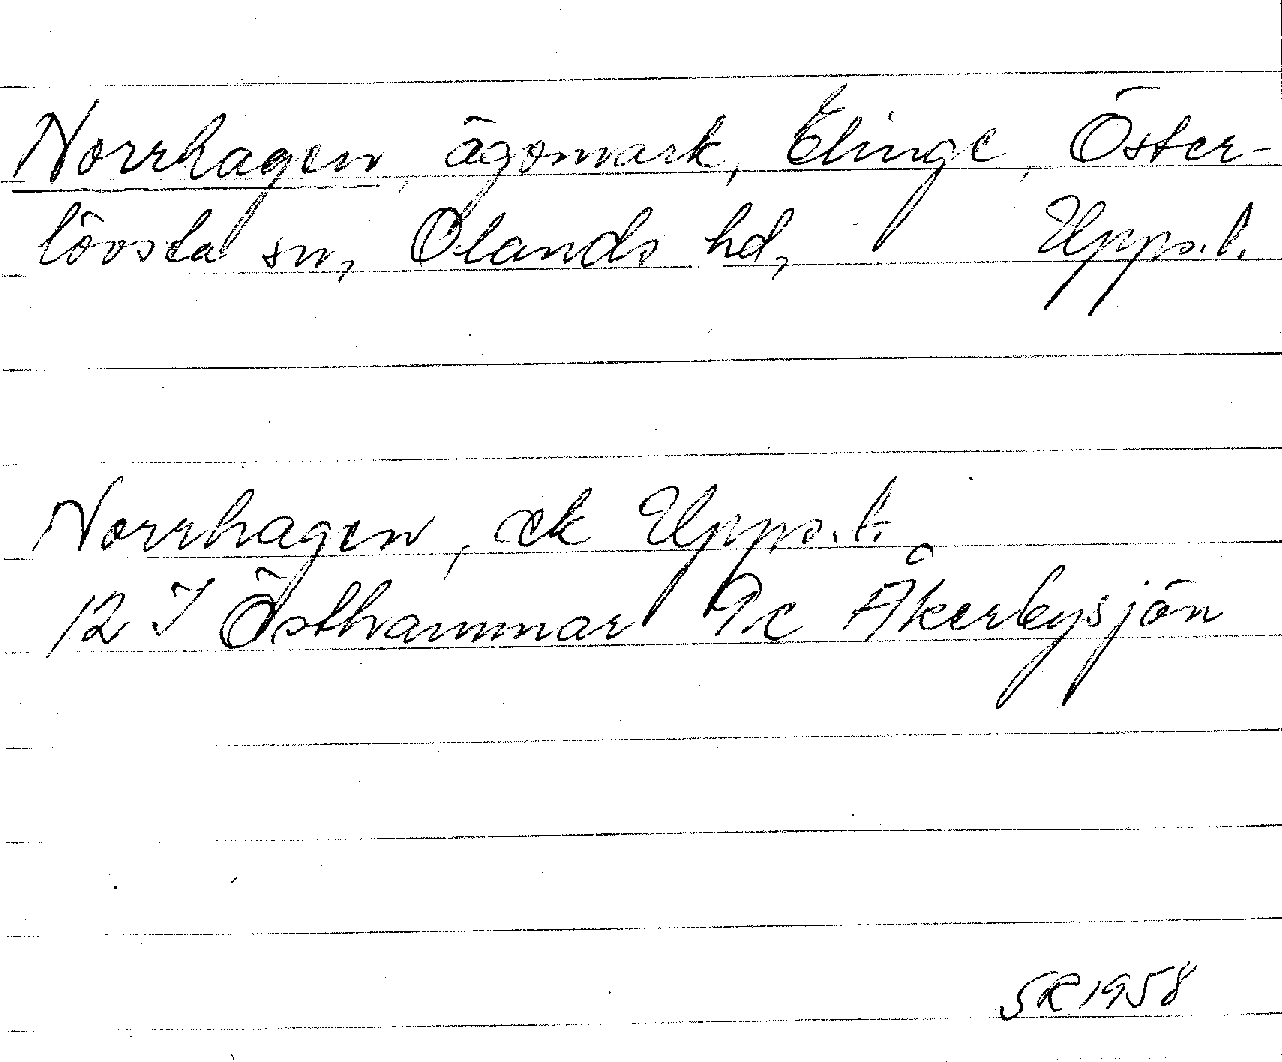 Norrhagen, ägomark, Elinge, Öster-
lövsta sn, Olands hd, Upps.l.
Norrhagen, ek Upps.l.
12 I Östhammar 7c Åkerbysjön
SR 1958